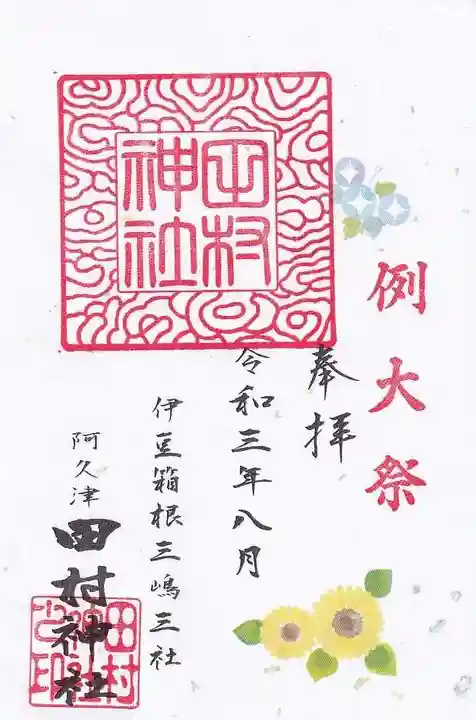 例大祭
奉拝
田村
神社
令和三年八月
伊豆箱根三嶋三社
阿久津
田村神社
田村
神社
之印